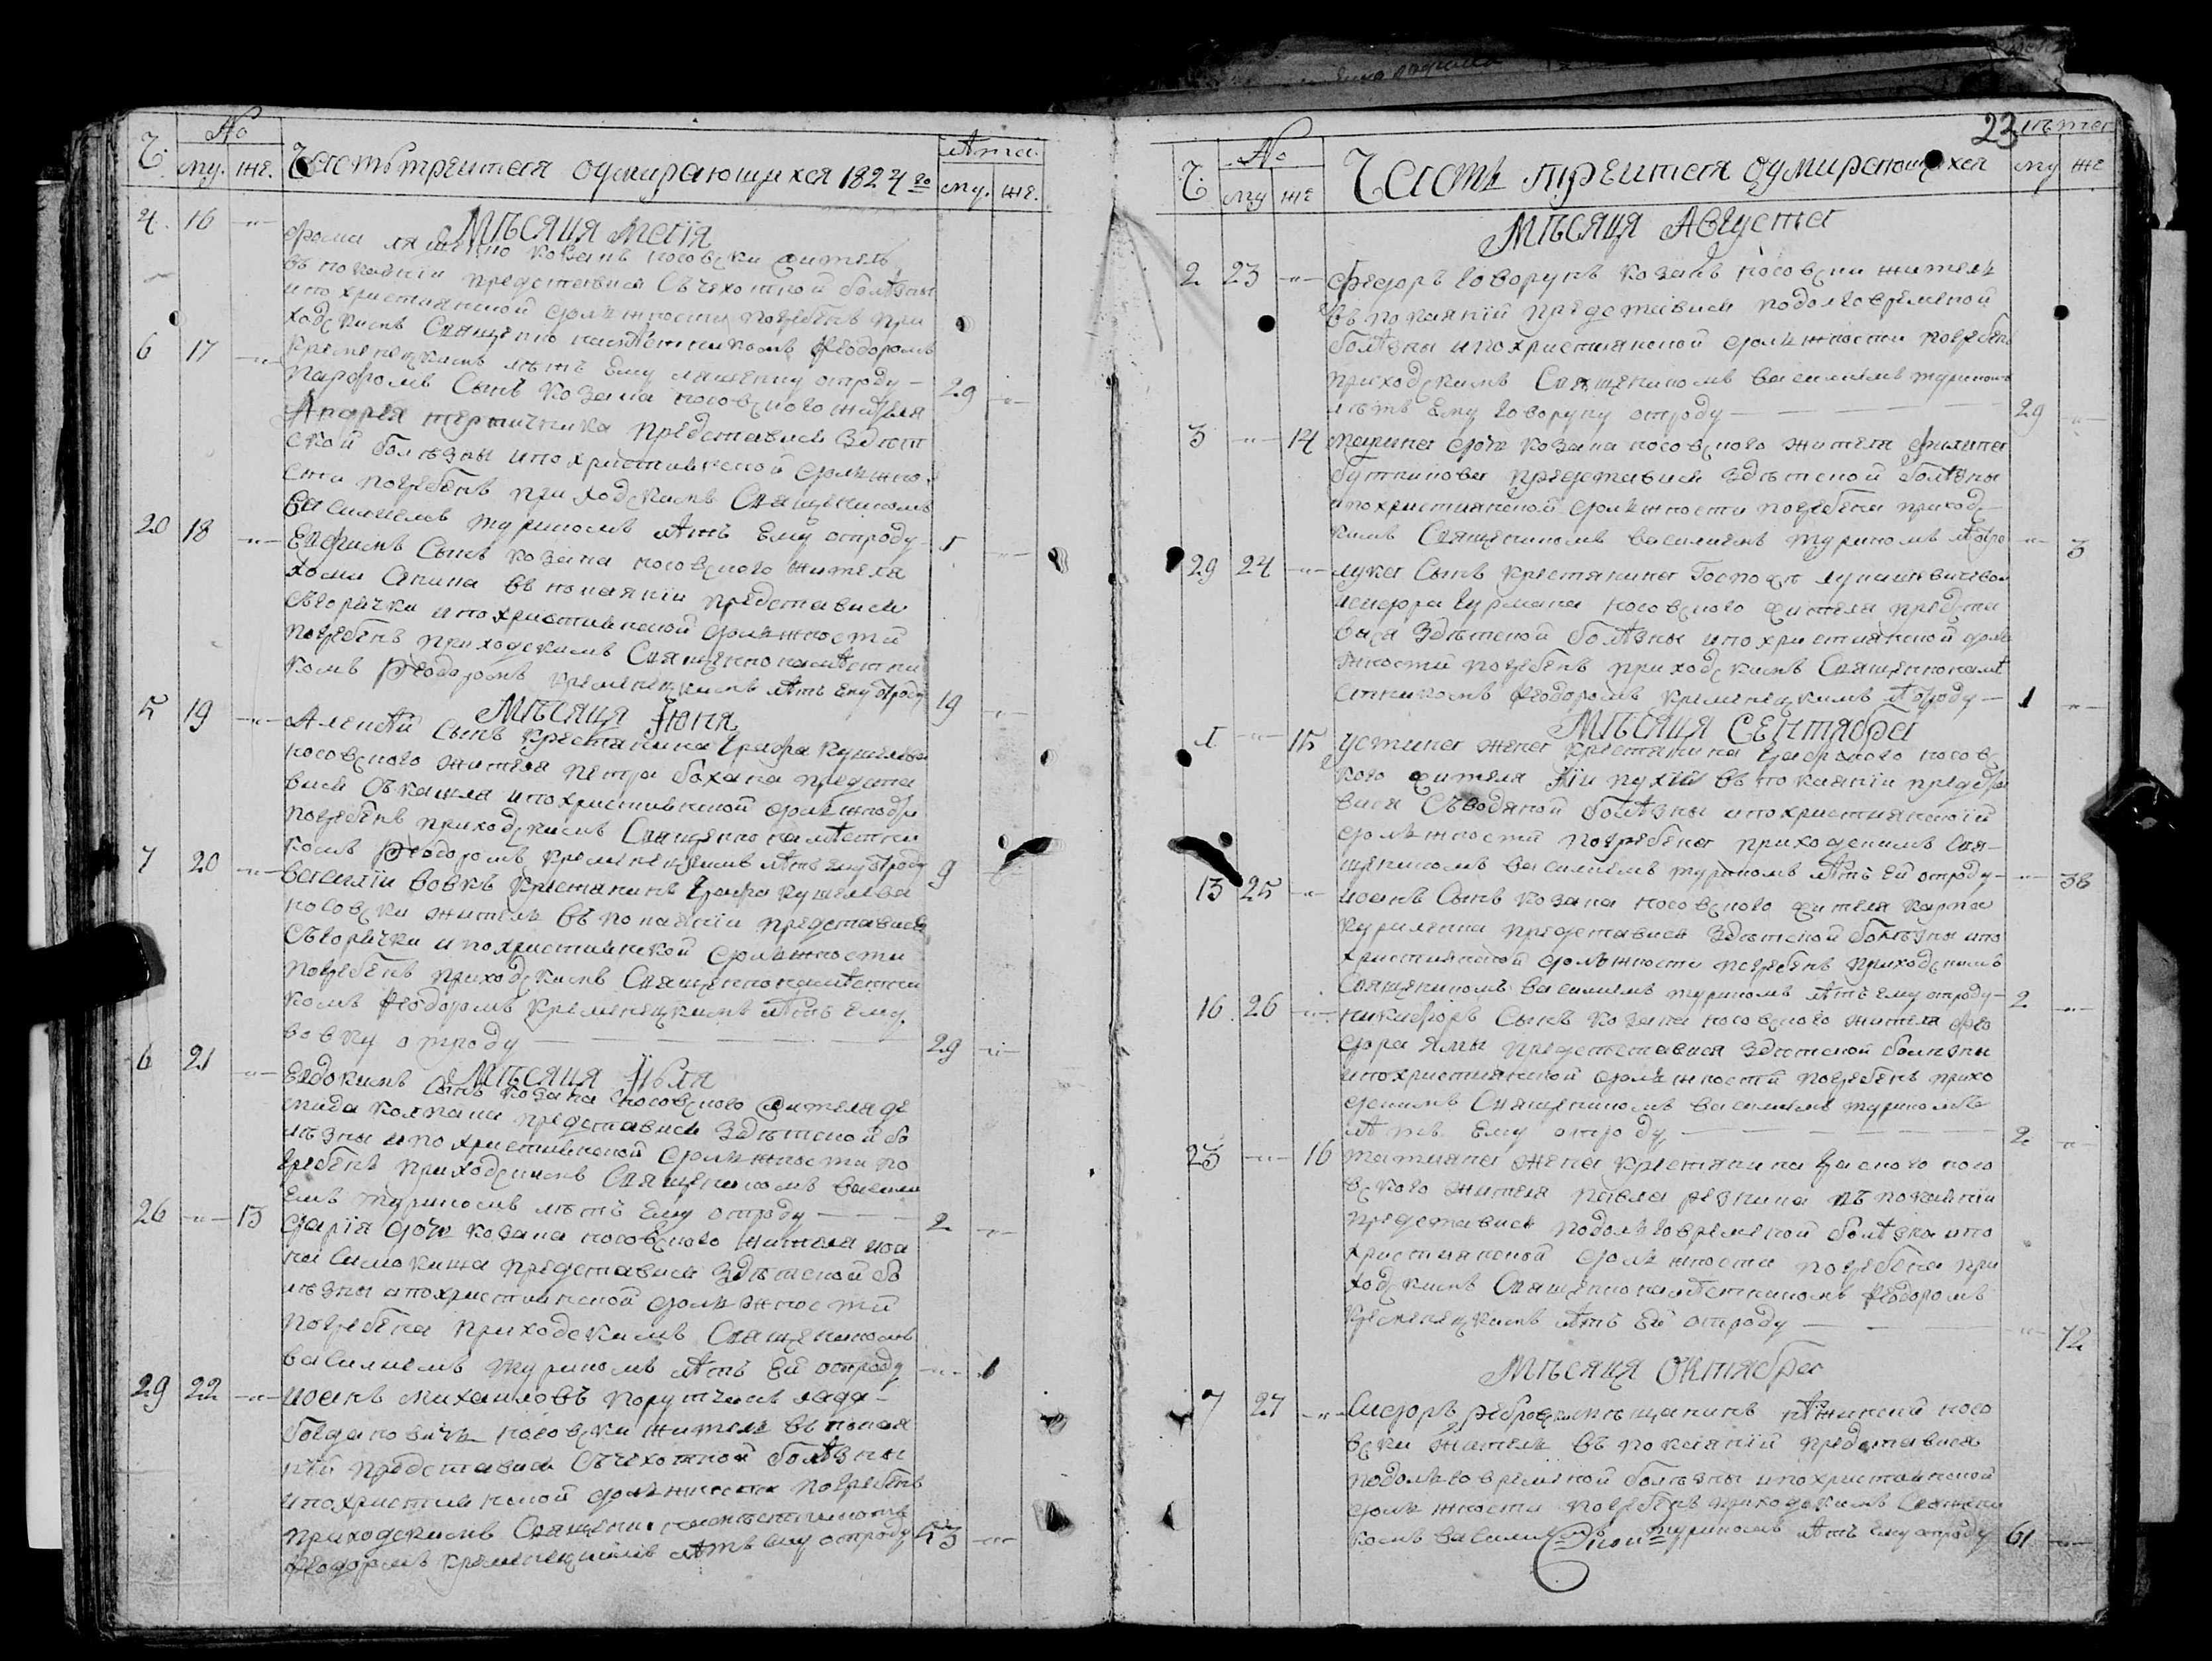 Ч. № му. же. Часть третяя оумирающихся 1824 го лѣта му. же.
Мѣсяця Маія
4. 16 -"- Фома козакъ носовски житель
въ покаяніи представися съчехотной болѣзны
ипохристиянской должности погребенъ при
ходскимъ Священно намѣсникомъ Феодоромъ
Кременецкимъ лѣтъ ему ляшенку отроду — 29 -"-
6 17 -"- Сынъ козака носовского жителя
Андрея представися здѣт
ской болѣзны ипохристиянской должно
сти погребенъ приходскимъ Священикомъ
Василиемъ Туриномъ лѣтъ Ему отроду 1 -"-
20 18 -"- Евфимъ Сынъ козака носовского жителя
Хомы въ покаяніи представися
съгорячки ипохристиянской должностй
погребенъ приходскимъ Священнонамѣстни
комъ Феодоромъ Кременецкимъ лѣтъ Ему отроду 19 -"-
Мѣсяця Июня
5 19 -"- Алексѣй Сынъ крестянина Графа Кушелева
носовского жителя Петра Бохана предста
вися съкашля ипохристиянской должности
погребенъ приходскимъ Священно намѣстни
комъ Феодоромъ Кременецкимъ лѣтъ ему отроду 9 -"-
7 20 -"- Василии Вовкъ крестянинъ Графа Кушелева
носовски житель въ покаянии представися
съгорячки ипохристиянской должности
погребенъ приходскимъ Священнонамѣстни
комъ Феодоромъ Кременецкимъ лѣтъ Ему
Вовку отроду — 29 -"-
Мѣсяця Июля
6 21 -"- Евдокимъ Сынъ козака носовского жителя де
мида Колпака представися Здѣтской бо
лѣзны ипохристиянской должности по
гребенъ приходскимъ Священикомъ Васили
емъ Туриномъ лѣтъ Ему отроду — 2 -"-
26 -"- 13 Дарія дочь козака носовского жителя иоа
на представися Здѣтской бо
лѣзны ипохристиянской должностй
погребена приходскимъ Священикомъ
Василиемъ Туриномъ лѣтъ Ей отроду -"- 1
29 22 -"- иоанъ Михаиловъ
носовски житель въ покая
нïй представися съчехотной болѣзны
ипохристиянской должности погребенъ
приходскимъ
Феодоромъ Кременецкимъ лѣтъ ему отроду 53 -"-
23
Ч. № му же Часть третяя оумирающихся лѣта му же
Мѣсяця Августа
2 23 -"- Федоръ Говорунъ козакъ носовски житель
въ покаянïй представися подолговременой
болѣзны ипохристиянской должности погребенъ
приходскимъ Священикомъ Василиемъ Туриномъ
лѣтъ Ему Говоруну отроду — 29 -"-
3 -"- 14 Марина дочь козака носовского жителя Филипа
представися Здѣтской болѣзны
ипохристиянской должности погребена приход
кимъ Священикомъ Василиемъ Туриномъ -"- 3
29 24 -"- Лука Сынъ крестянина
носовского жителя предста
вися Здѣтской болѣзны ипохристиянской дол
жностй погребенъ приходскимъ Священнонамѣ
стникомъ Феодоромъ Кременецкимъ отроду — 1 -"-
Мѣсяця Сентября
1 -"- 15 Устина жена крестянина носовс
кого жителя въ покаянïи предста
вися съводяной болѣзны ипохристиянскоïй
должностй погребена приходскимъ свя
щеникомъ Василиемъ Туриномъ лѣтъ ей отроду -"- 38
13 25 -"- иоанъ Сынъ козака носовского жителя Карпа
Куриленка представися Здѣтской болѣзны ипо
християнской должности погребенъ приходскимъ
Священикомъ Василиемъ Туриномъ лѣтъ ему отроду — 2 -"-
16. 26 -"- Никифоръ Сынъ козака носовского жителя Фео
дора Ямы представися Здѣтской болѣзны
ипохристиянской должностй погребенъ прихо
дскимъ Священикомъ Василиемъ Туриномъ
лѣтъ Ему отроду — 2 -"-
23 -"- 16 Татияна жена крестянина носо
вского жителя Павла въ покаянïи
представися подолговременой болѣзны ипо
християнской должности погребена при
ходскимъ Священнонамѣстникомъ Феодоромъ
Кременецкимъ лѣтъ Ей отроду — -"- 72
Мѣсяця Октября
7 27 -"- Сидоръ мѣщанинъ нѣжински носо
вски житель въ покаянïй представися
подолговременой болѣзны ипохристиянской
должности погребенъ приходскимъ Священи
комъ Василиемъ Туриномъ лѣтъ Ему отроду 61 -"-